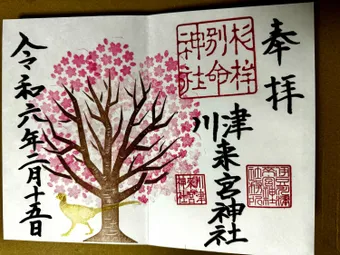 奉拝
杉桙
別命
神社
川津来宮神社
令和六年二月十五日